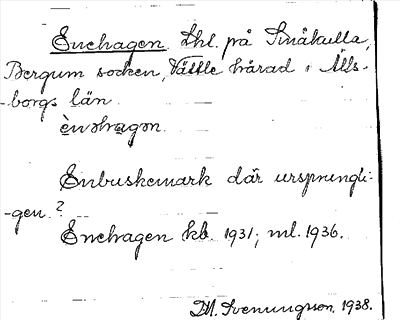 Enehagen Lhl. på Småkulla,
Bergum socken, Vättle härad i Älfs-
-borgs län.
Enbuskemark där ursprungli-
-gen?
Enehagen kb. 1931; ml. 1936.
M. Svenungsson, 1938.